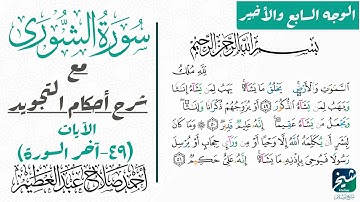 الوجه السابع والأخير
سورة الشورى
مع
شرح أحكام التجويد
الآيات
(٤٩-آخر السورة)
أحمد صلاح عبد العظيم
بسم الله الرحمن الرحيم
لله ملك
السموت والأرض يخلق ما يشاء يهب لمن يشاء إنثا
ويهب لمن يشاء الذكور ٤٩ أو يزوجهم ذكرانا وإنثا
ويجعل من يشاء عقيما إنه عليم قدير ٥٠ وما كان
لبشر أن يكلمه الله إلا وحيا أو من وراء حجاب أو يرسل
رسولا فيوحي بإذنه ما يشاء إنه علي حكيم ٥١
شيخ